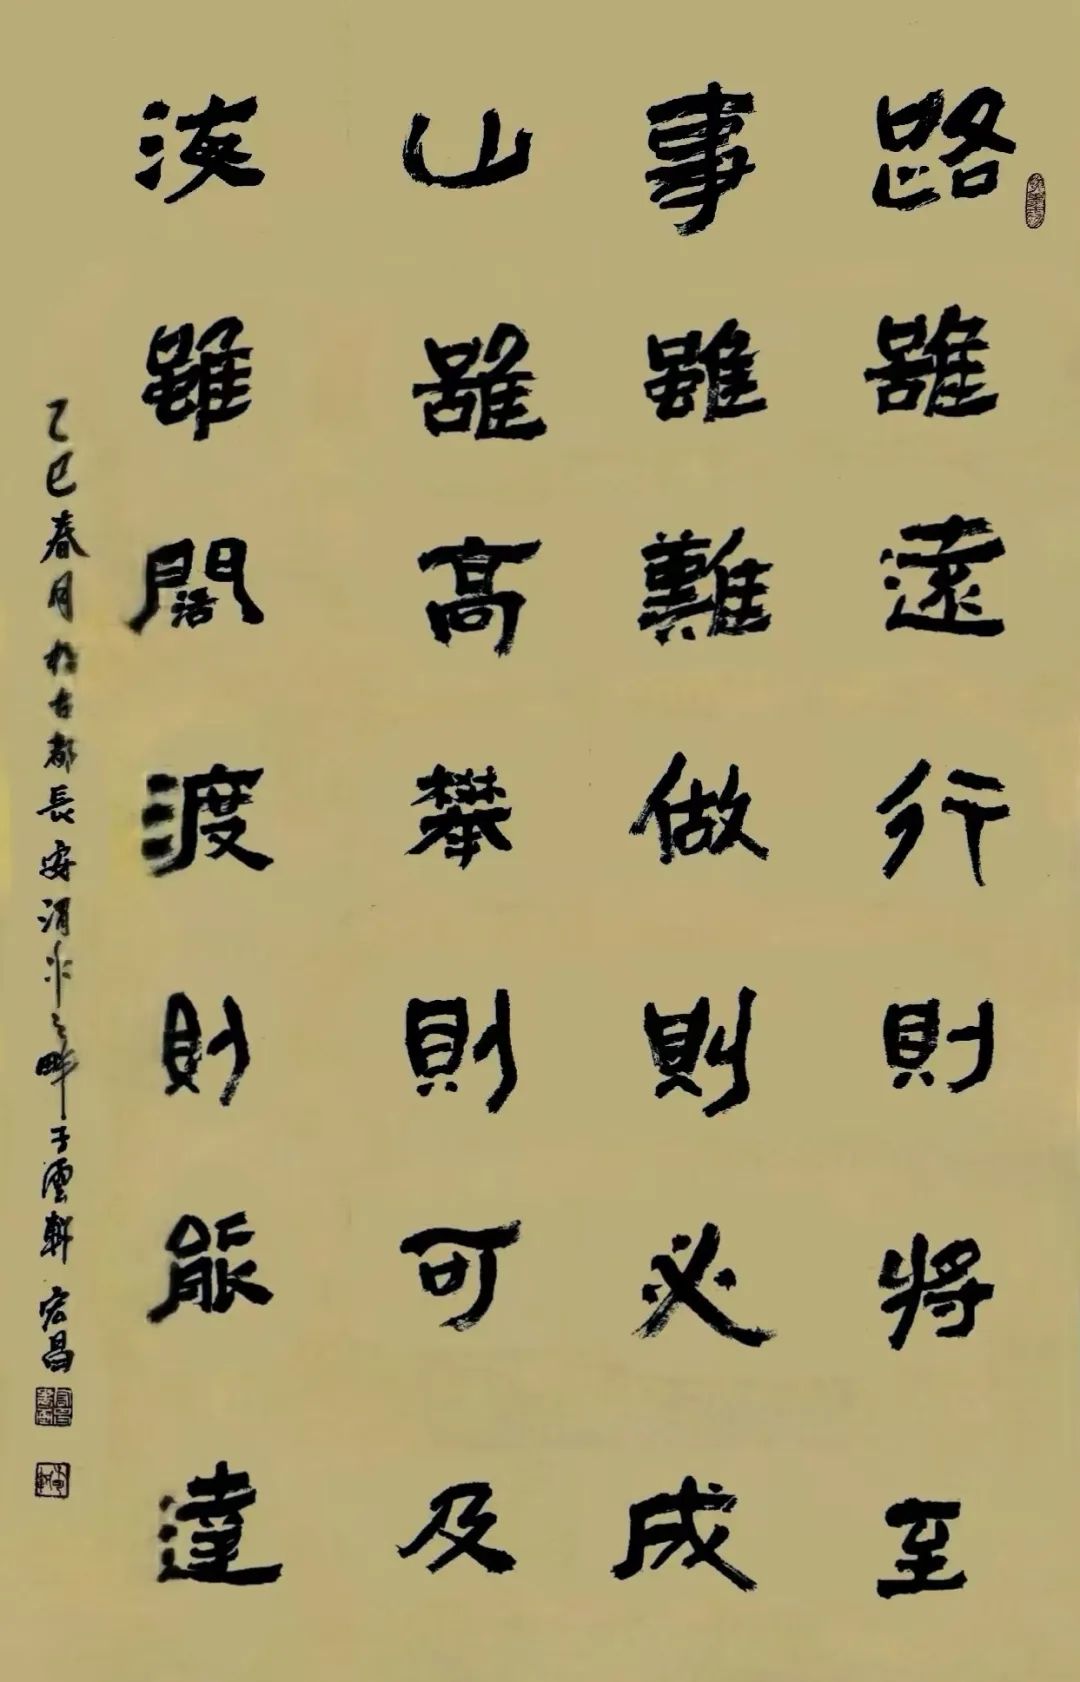 路雖遠行則將至
事雖難做則必成
山雖高攀則可及
海雖闊渡則能達
乙巳春月於古都長安渭水之畔子雲軒 宏昌